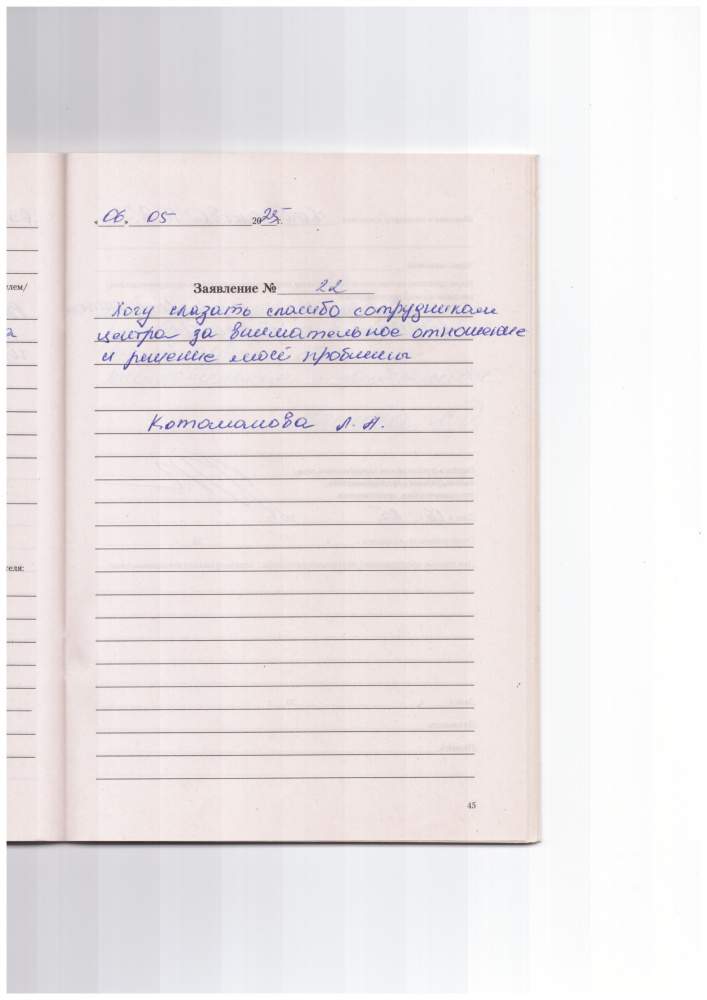 «06» 05 2025г.
Заявление № 22
Хочу сказать спасибо сотрудникам
центра за внимательное отношение
и решение моей проблемы
Котоманова Л. А.
45
лем/
а
теля: